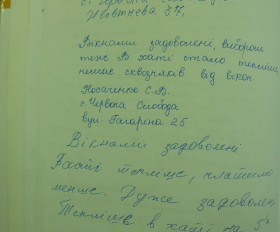 Жовтнева 87.
Вікнами задоволені, вибором
теж. В хаті стало тепліше,
немає сквозняків від вікон.
Носаченко С.В.
с. Червона Слобода
вул. Гагаріна 25
Вікнами задоволені
В хаті тепліше,
менше. Дуже задоволені
в хаті на 5°